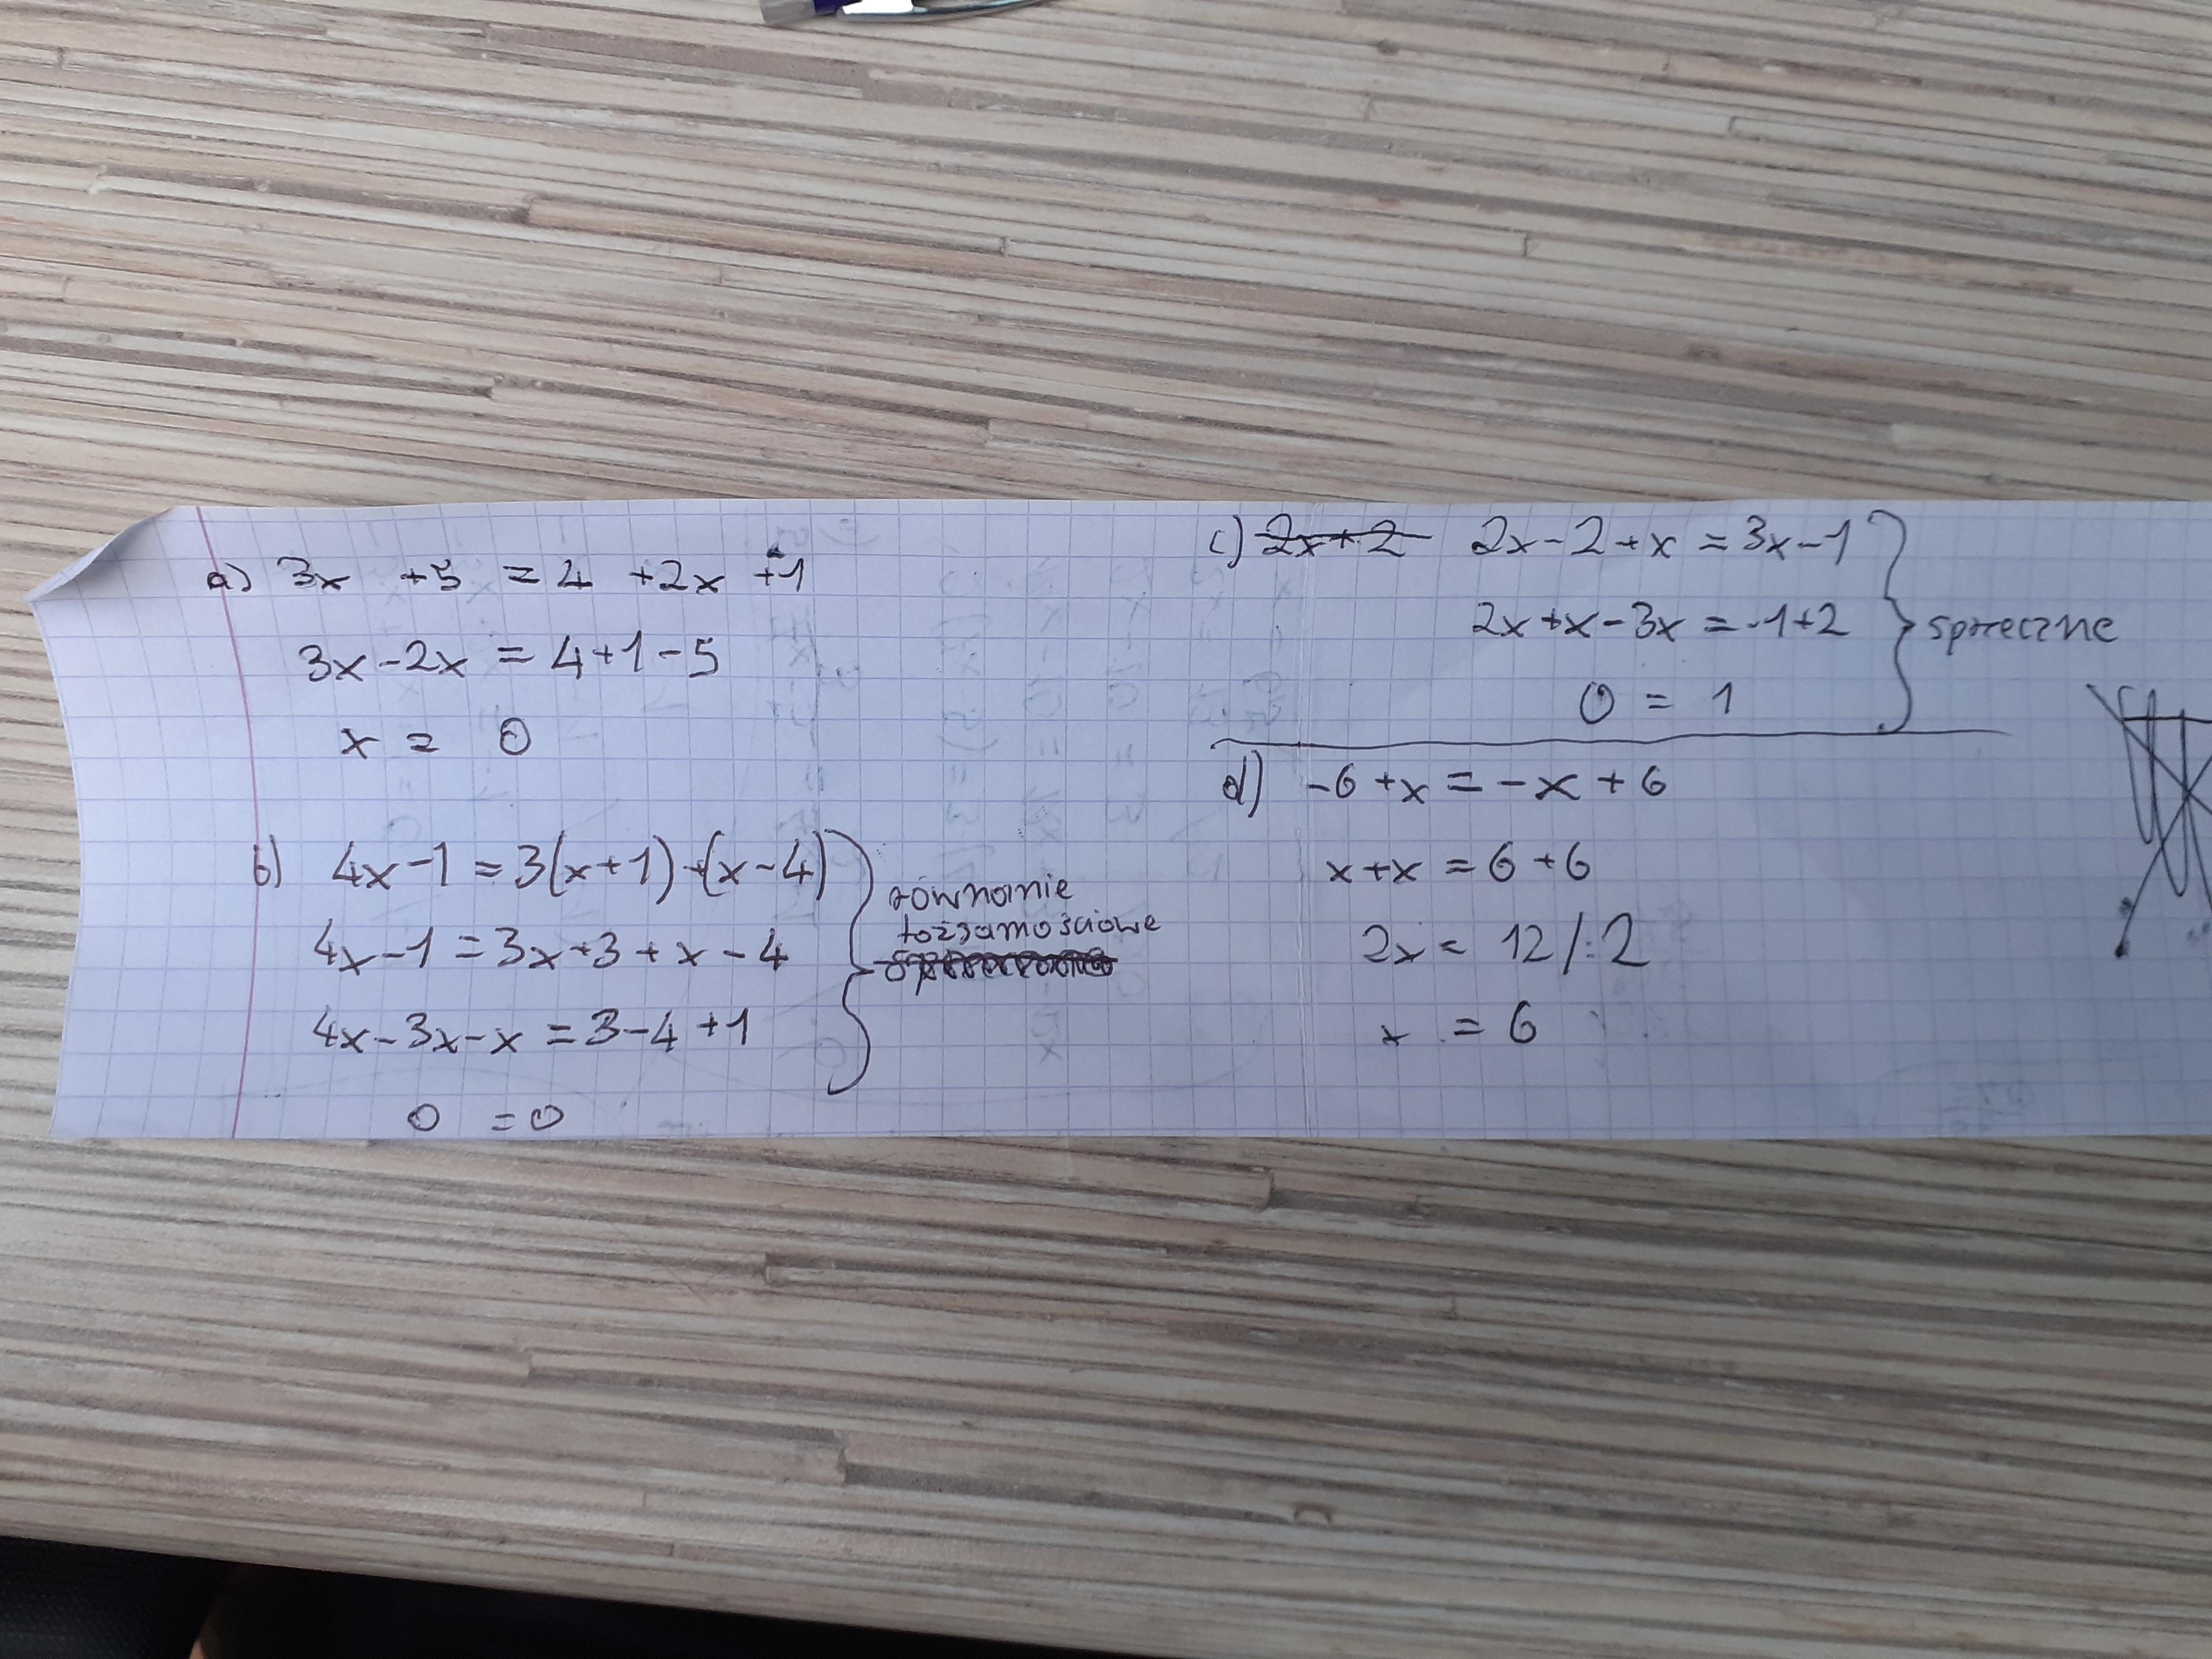 a) 3x +5 = 4 +2x +1
3x-2x = 4+1-5
x = 0
b) 4x-1 = 3(x+1)+(x-4)
4x-1 = 3x+3+x-4
4x-3x-x = 3-4+1
0 = 0
równanie
tożsamościowe
c) 2x+2 2x-2+x = 3x-1
2x+x-3x = -1+2
0 = 1
sprzeczne
d) -6+x = -x+6
x+x = 6+6
2x = 12 /:2
x = 6